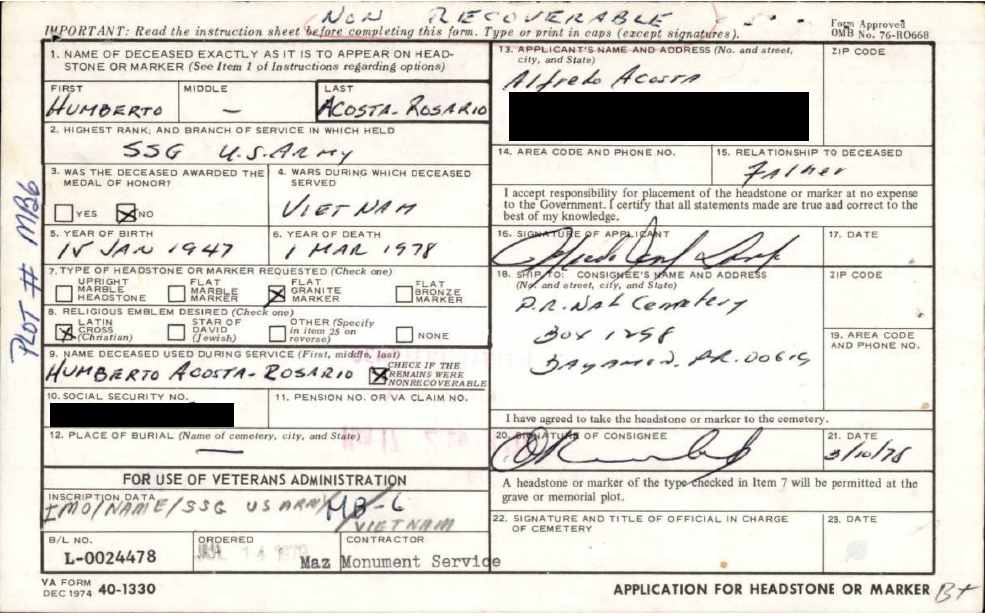 NON RECOVERABLE
IMPORTANT: Read the instruction sheet before completing this form. Type or print in caps (except signatures).
Form Approved
OMB No. 76-RO668
1. NAME OF DECEASED EXACTLY AS IT IS TO APPEAR ON HEAD-
STONE OR MARKER (See Item 1 of Instructions regarding options)
FIRST MIDDLE LAST
HUMBERTO — ACOSTA-ROSARIO
2. HIGHEST RANK; AND BRANCH OF SERVICE IN WHICH HELD
SSG U.S. ARMY
3. WAS THE DECEASED AWARDED THE
MEDAL OF HONOR?
YES NO
4. WARS DURING WHICH DECEASED
SERVED
VIETNAM
5. YEAR OF BIRTH
15 JAN 1947
6. YEAR OF DEATH
1 MAR 1978
7. TYPE OF HEADSTONE OR MARKER REQUESTED (Check one)
UPRIGHT
MARBLE
HEADSTONE
FLAT
MARBLE
MARKER
FLAT
GRANITE
MARKER
FLAT
BRONZE
MARKER
8. RELIGIOUS EMBLEM DESIRED (Check one)
LATIN
CROSS
(Christian)
STAR OF
DAVID
(Jewish)
OTHER (Specify
in item 25 on
reverse)
NONE
9. NAME DECEASED USED DURING SERVICE (First, middle, last)
HUMBERTO ACOSTA-ROSARIO
CHECK IF THE
REMAINS WERE
NONRECOVERABLE
10. SOCIAL SECURITY NO.
11. PENSION NO. OR VA CLAIM NO.
12. PLACE OF BURIAL (Name of cemetery, city, and State)
—
FOR USE OF VETERANS ADMINISTRATION
INSCRIPTION DATA
IMO/NAME/SSG US ARMY/
VIETNAM
MB-6
B/L NO.
L-0024478
ORDERED
CONTRACTOR
Maz Monument Service
VA FORM
DEC 1974 40-1330
PLOT # MB6
13. APPLICANT'S NAME AND ADDRESS (No. and street,
city, and State)
ZIP CODE
Alfredo Acosta
14. AREA CODE AND PHONE NO.
15. RELATIONSHIP TO DECEASED
Father
I accept responsibility for placement of the headstone or marker at no expense
to the Government. I certify that all statements made are true and correct to the
best of my knowledge.
16. SIGNATURE OF APPLICANT
17. DATE
18. SHIP TO: CONSIGNEE'S NAME AND ADDRESS
(No. and street, city, and State)
ZIP CODE
P.R. Nat Cemetery
Box 1298
Bayamon, P.R. 00619
19. AREA CODE
AND PHONE NO.
I have agreed to take the headstone or marker to the cemetery.
20. SIGNATURE OF CONSIGNEE
21. DATE
3/10/78
A headstone or marker of the type checked in Item 7 will be permitted at the
grave or memorial plot.
22. SIGNATURE AND TITLE OF OFFICIAL IN CHARGE
OF CEMETERY
23. DATE
APPLICATION FOR HEADSTONE OR MARKER
B+